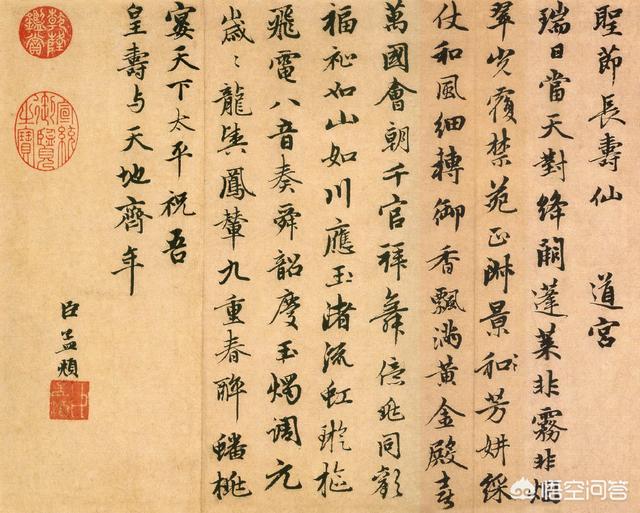 聖節長壽仙 道宮
瑞日當天對絳闕蓬萊非霧非烟
翠光覆禁苑正淑景和芳妍綵
仗和風細轉御香飄滿黃金殿喜
萬國會朝千官拜舞億兆同歡
福祉如山如川應玉渚流虹璇樞
飛電八音奏舜韶慶玉燭調元
歲〻龍輿鳳輦九重春醉蟠桃
宴天下太平祝吾
皇壽与天地齊年
臣孟頫
乾隆鑑賞
宣統御覽之寶
悟空问答